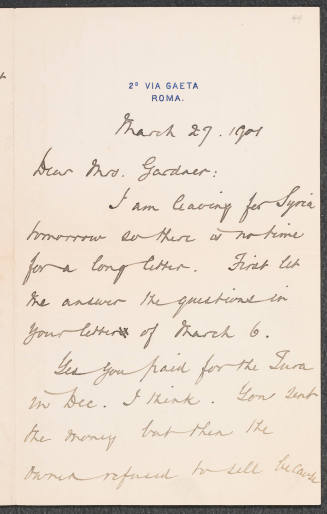 44
2º VIA GAETA
ROMA.
March 27. 1901
Dear Mrs. Gardner:
I am leaving for Syria
tomorrow so there is no time
for a long letter. First let
me answer the questions in
your letter of March 6.
Yes you paid for the Tura
in Dec. I think. You sent
the money but then the
owner refused to sell because